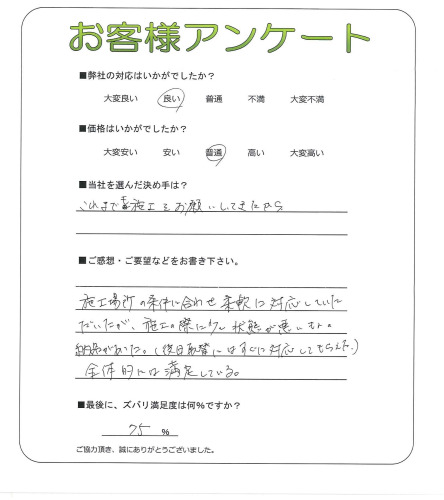 お客様アンケート
■弊社の対応はいかがでしたか?
大変良い 良い 普通 不満 大変不満
■価格はいかがでしたか?
大変安い 安い 普通 高い 大変高い
■当社を選んだ決め手は?
これまでも施工をお願いしてきたから
■ご感想・ご要望などをお書き下さい。
施工場所の条件に合わせ柔軟に対応していた
だいたが、施工の際に少し状態が悪いもの
納品があった。(後日取替にはすぐに対応してもらえた。)
全体的には満足している。
■最後に、ズバリ満足度は何%ですか?
75 %
ご協力頂き、誠にありがとうございました。